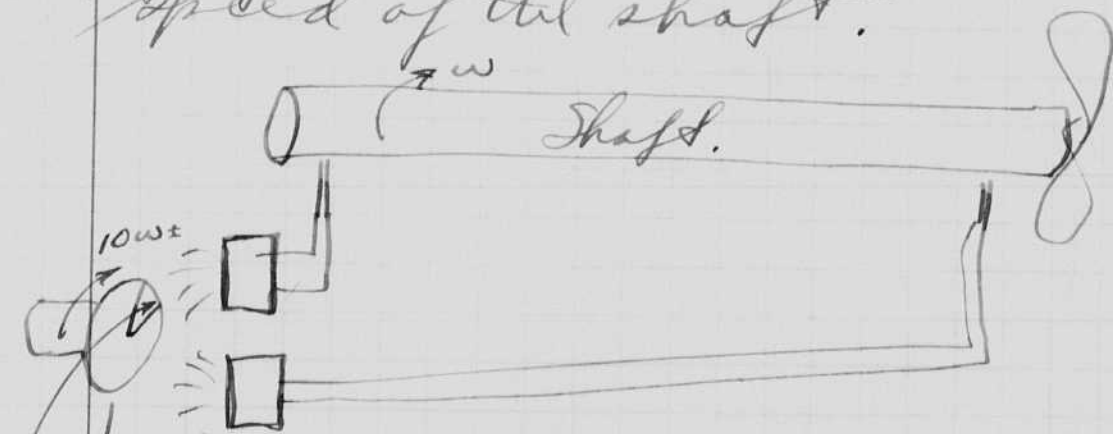 speed of the shaft.
ω
Shaft.
10ω±